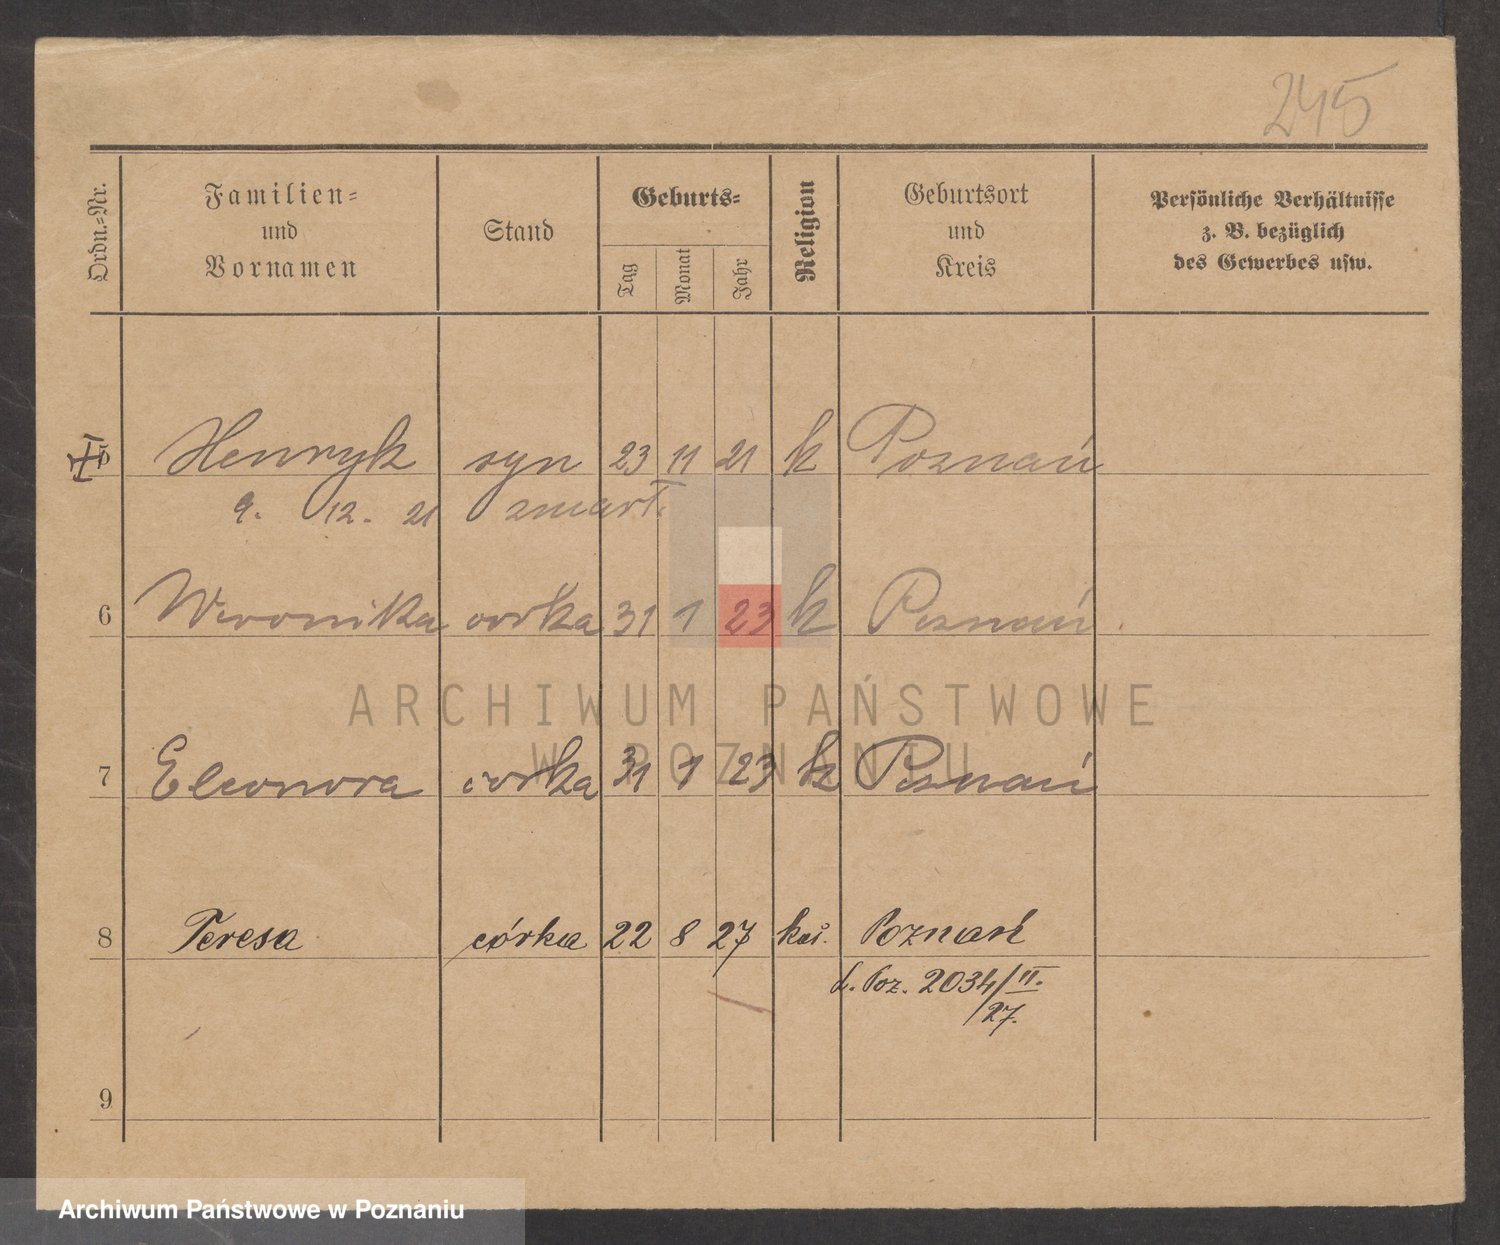 245
Ordn.=Nr.
Familien=
und
Vornamen
Stand
Geburts=
Tag
Monat
Jahr
Religion
Geburtsort
und
Kreis
Persönliche Verhältnisse
z. B. bezüglich
des Gewerbes usw.
5 Henryk syn 23 11 21 k Poznań
9. 12. 21 zmarł.
6 Weronika córka 31 1 23 k Poznań
ARCHIWUM PAŃSTWOWE
W POZNANIU
7 Eleonora córka 31 1 23 k Poznań
8 Teresa córka 22 8 27 kat. Poznań
L. Poz. 2034/II.
/27.
9
Archiwum Państwowe w Poznaniu